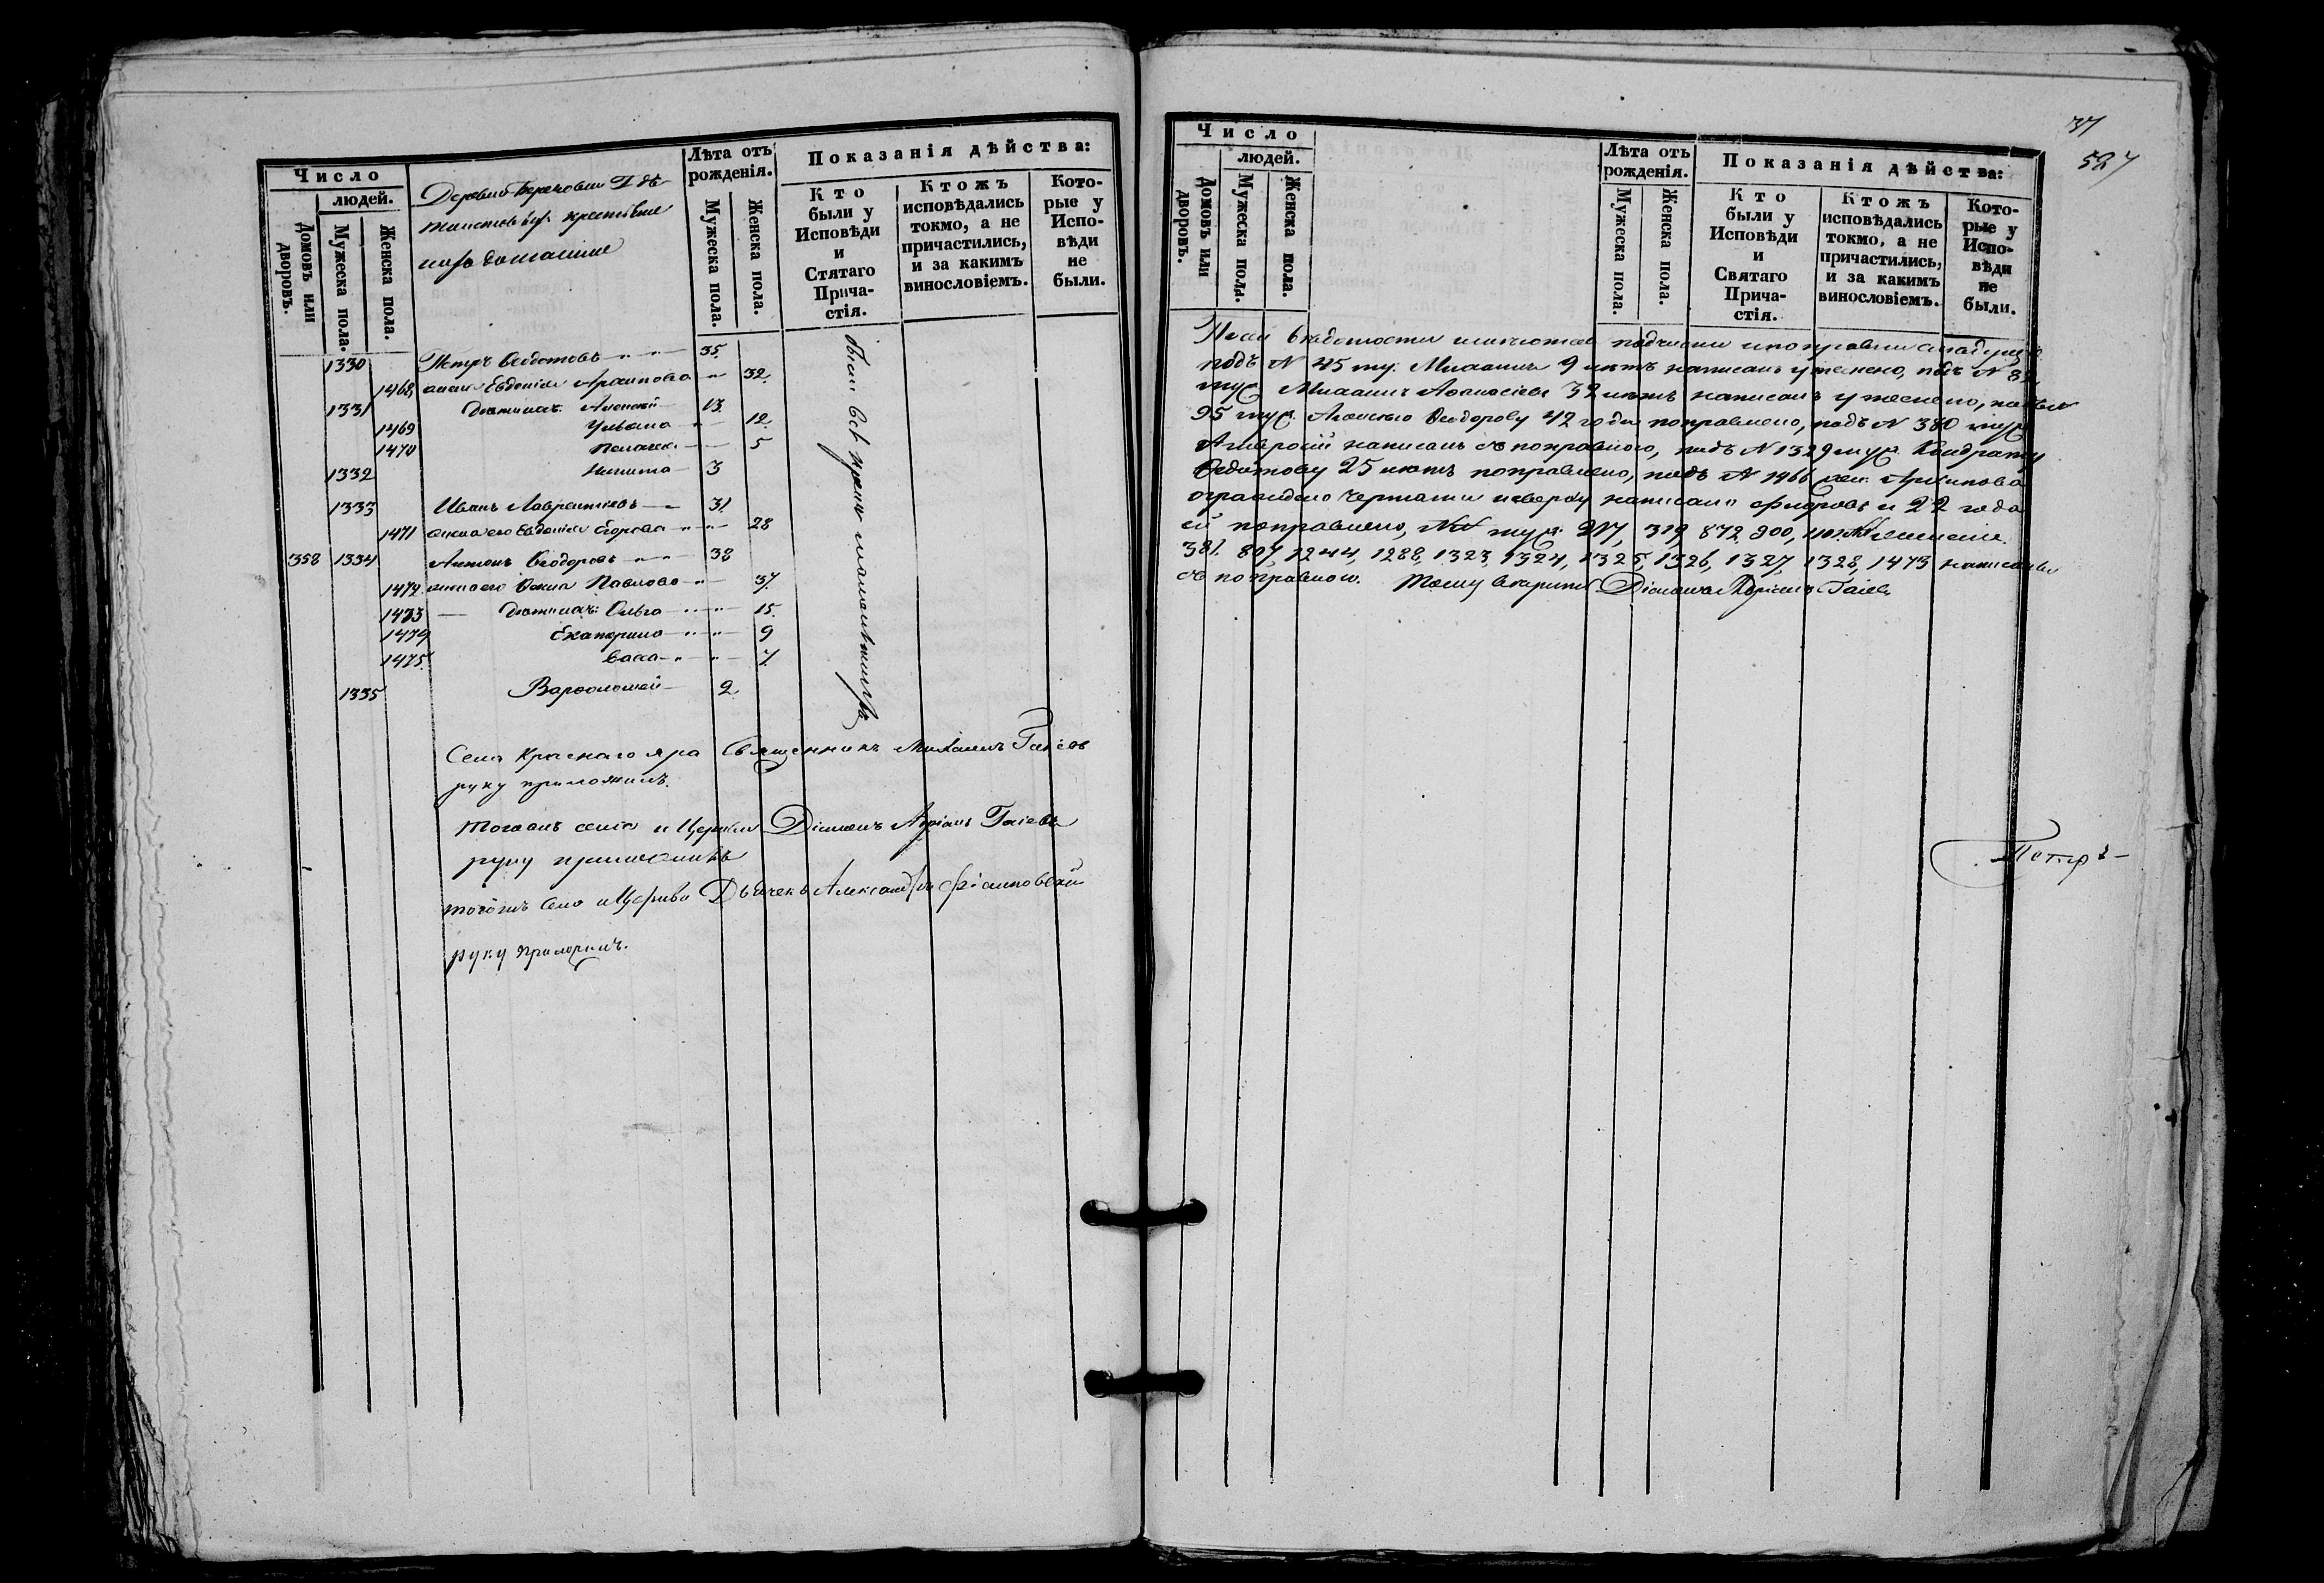 Число
людей.
Домовъ или дворовъ.
Мужеска пола.
Женска пола.
Деревни
крестьяне
домашние
Лѣта отъ рожденія.
Мужеска пола.
Женска пола.
Показанія дѣйства:
Кто были у Исповѣди и Стятаго Прича-
стія.
Ктожъ исповѣдались токмо, а не причастились, и за какимъ винословіемъ.
Кото-
рые у Испо-
вѣди не были.
1330 Петръ Ѳедотовъ 35.
1468 жена Евдокія Архипова 32.
1331 Дѣти ихъ: Алексѣй 13.
1469 Ульяна 12.
1470 Пелагея 5
1332 Никита 3
1333 Иванъ Лаврентіевъ 31.
1471 жена его Евдокія Егорова 28
358 1334 Антонъ Ѳеодоровъ 38
1472 жена его Павлова 37.
1473 Дѣти ихъ: Ольга 15.
1474 Екатерина 9
1475. Васса 7.
1335 Варѳоломей 2.
были всѣ кромѣ малолѣтнихъ
Села Краснаго яра Священникъ Михаилъ Гаіевъ
руку приложилъ.
Тогожъ села и Церкви Діаконъ Адріанъ Гаіевъ
руку приложилъ
тогожъ села и Церкви Дьячекъ Александръ
руку приложилъ.
37
527
Число
людей.
Домовъ или дворовъ.
Мужеска пола.
Женска пола.
Лѣта отъ рожденія.
Мужеска пола.
Женска пола.
Показанія дѣйства:
Кто были у Исповѣди и Святаго Прича-
стія.
Ктожъ исповѣдались токмо, а не причастились, и за какимъ винословіемъ.
Кото-
рые у Испо-
вѣди не были.
вѣдомости имеются подчистки и поправки
подъ N 45 муж. Михаилъ 9 лѣтъ написанъ подъ N
муж. Михаилъ Аѳанасіевъ 32 лѣтъ написанъ
95 муж. Ѳеодорову 42 года поправлено, подъ N 380 муж.
Амвросій написанъ съ поправкою, подъ N 1329 муж. Кондрату
Ѳедотову 25 лѣтъ поправлено, подъ N 1466 жен. Архипова
чертами и сверху написано и 22 года
ей поправлено, NN муж. 217, 319, 872, 900,
381. 807, 1244, 1288, 1323, 1324, 1325, 1326, 1327, 1328, 1473 написаны
съ поправкою. Діаконъ Адріанъ Гаіевъ
Петръ